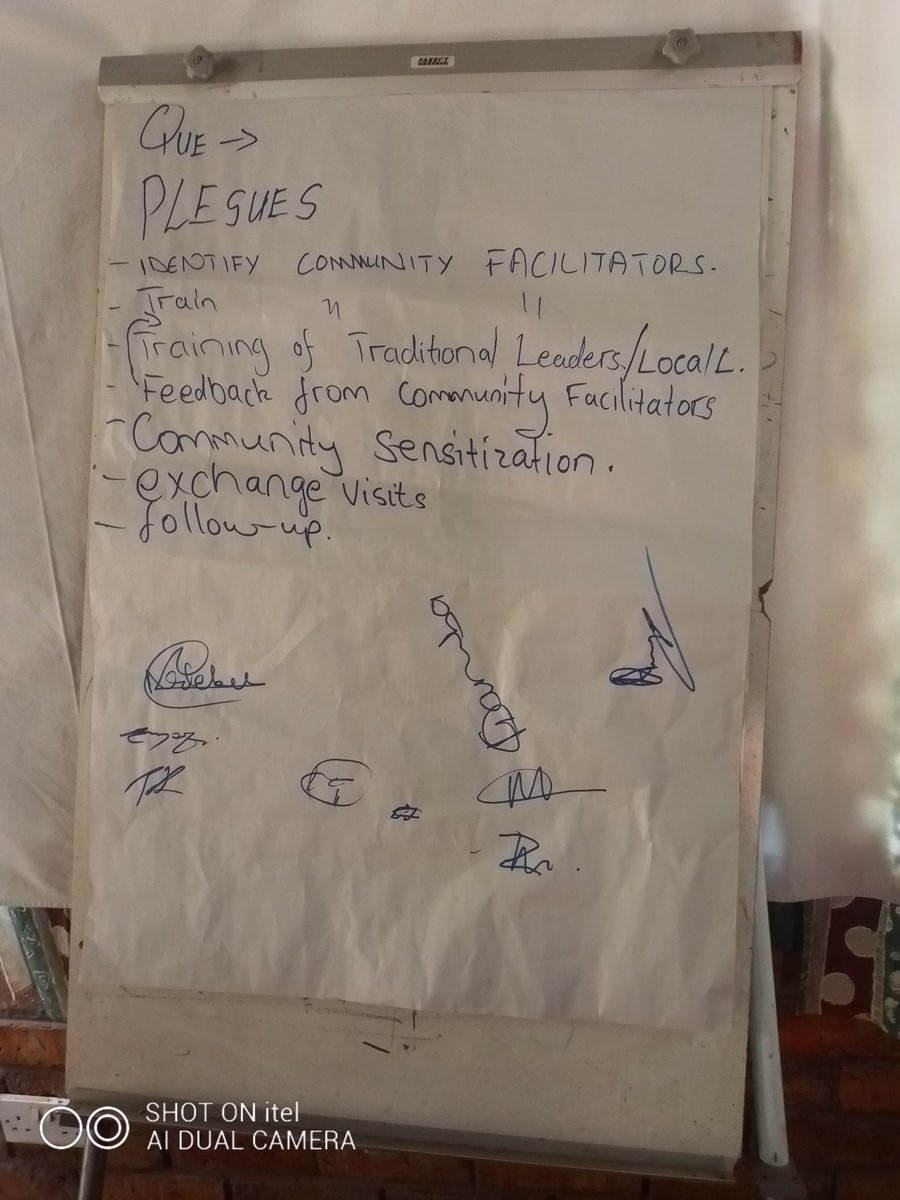 QUE →
PLEGUES
- IDENTIFY COMMUNITY FACILITATORS.
- Train " "
- Training of Traditional Leaders/Local L.
- Feedback from Community Facilitators
- Community Sensitization.
- exchange visits
- follow-up.
SHOT ON itel
AI DUAL CAMERA